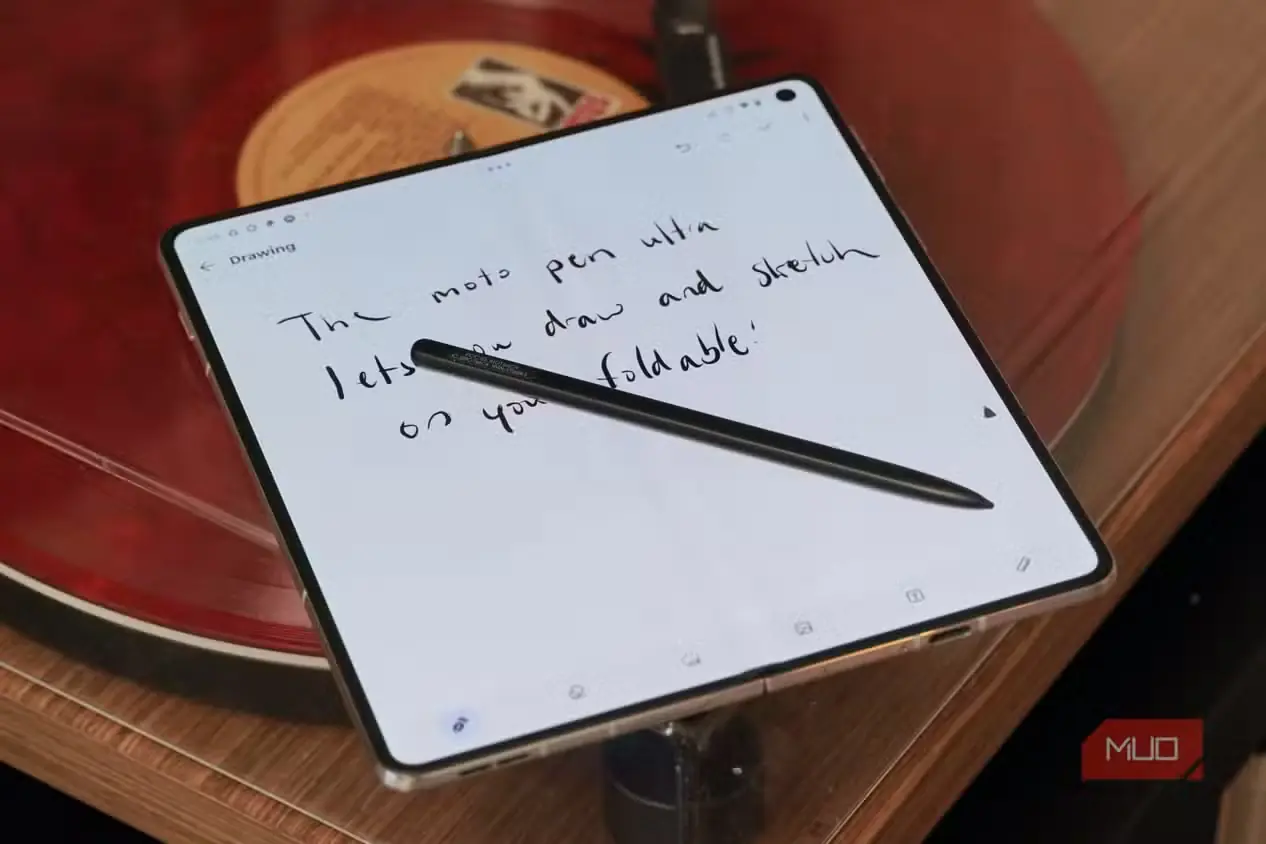 Drawing
The moto pen ultra
lets you draw and sketch
on your foldable!
MUO